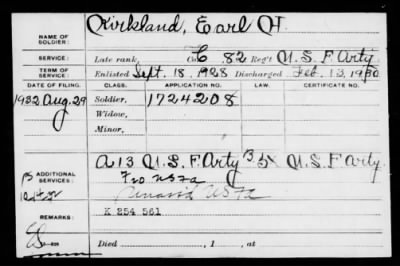 NAME OF SOLDIER: Kirkland, Earl H.
SERVICE: Late rank, Co. C 82 Reg't U. S. F. Arty.
TERM OF SERVICE: Enlisted Sept. 18, 1928 Discharged Feb. 13, 1930
DATE OF FILING. CLASS. APPLICATION NO. LAW. CERTIFICATE NO.
1932 Aug. 29 Soldier, 1724208
Widow,
Minor,
ADDITIONAL SERVICES: A 13 U. S. F. Arty. U. S. F. Arty.
REMARKS: K 254 561
Died , 1 , at